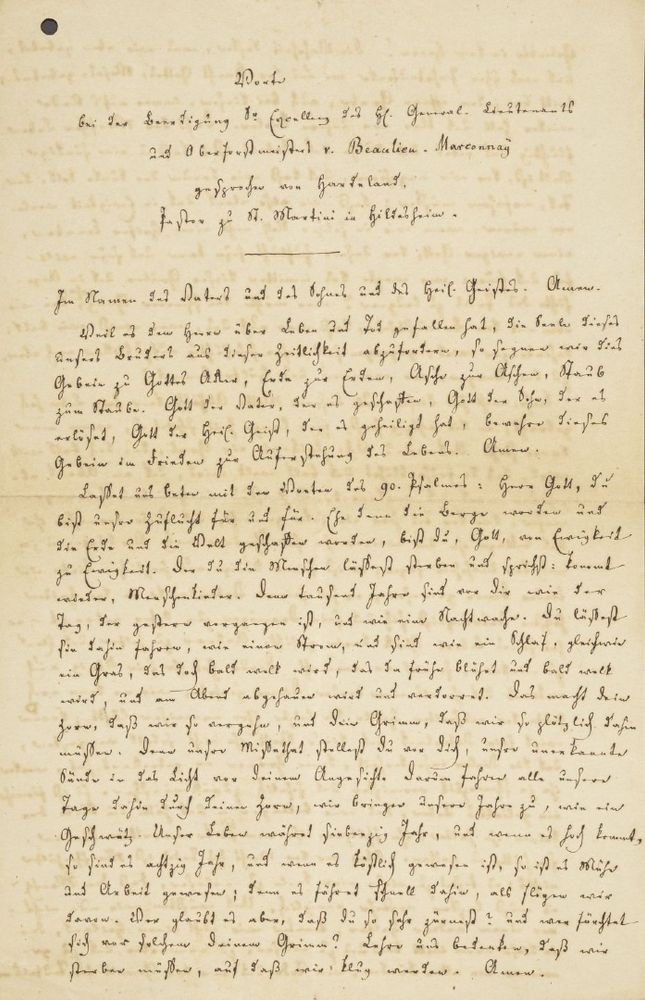 Worte
bei der Beerdigung Sr. Excellenz des H. General-Lieutenants
und Oberforstmeisters v. Beaulieu-Marconnaÿ
gesprochen von Hardeland,
Pastor zu St. Martini in Hildesheim.
Im Namen des Vaters und des Sohnes und des Heil. Geistes. Amen.
Weil es dem Herrn über Leben und Tod gefallen hat, die Seele dieses
unsers Bruders aus dieser Zeitlichkeit abzufordern, so segnen wir dies
Gebein zu Gottes Acker, Erde zur Erden, Asche zur Aschen, Staub
zum Staube. Gott der Vater, der es geschaffen, Gott der Sohn, der es
erlöset, Gott der Heil. Geist, der es geheiligt hat, bewahre dieses
Gebein im Frieden zur Auferstehung des Lebens. Amen.
Lasset uns beten mit den Worten des 90. Psalmes: Herr Gott, du
bist unsre Zuflucht für und für. Ehe denn die Berge worden und
die Erde und die Welt geschaffen worden, bist du, Gott, von Ewigkeit
zu Ewigkeit. Der du die Menschen lässest sterben und sprichst: kommt
wieder, Menschenkinder. Denn tausend Jahre sind vor dir wie der
Tag, der gestern vergangen ist, und wie eine Nachtwache. Du lässest
sie dahin fahren, wie einen Strom, und sind wie ein Schlaf, gleichwie
ein Gras, das doch bald welk wird, das da frühe blühet und bald welk
wird, und am Abend abgehauen wird und verdorret. Das macht dein
Zorn, daß wir so vergehn, und dein Grimm, daß wir so plötzlich dahin
müssen. Denn unsre Missethat stellest du vor dich, unsre unerkannte
Sünde in das Licht vor deinem Angesichte. Darum fahren alle unsere
Tage dahin durch deinen Zorn, wir bringen unsere Jahre zu, wie ein
Geschwätz. Unser Leben währet siebenzig Jahr, und wenn es hoch kommt,
so sind es achtzig Jahr, und wenn es köstlich gewesen ist, so ist es Mühe
und Arbeit gewesen; denn es fähret schnell dahin, als flögen wir
davon. Wer glaubt es aber, daß du so sehr zürnest? und wer fürchtet
sich vor solchem deinem Grimm? Lehre uns bedenken, daß wir
sterben müssen, auf daß wir klug werden. Amen.